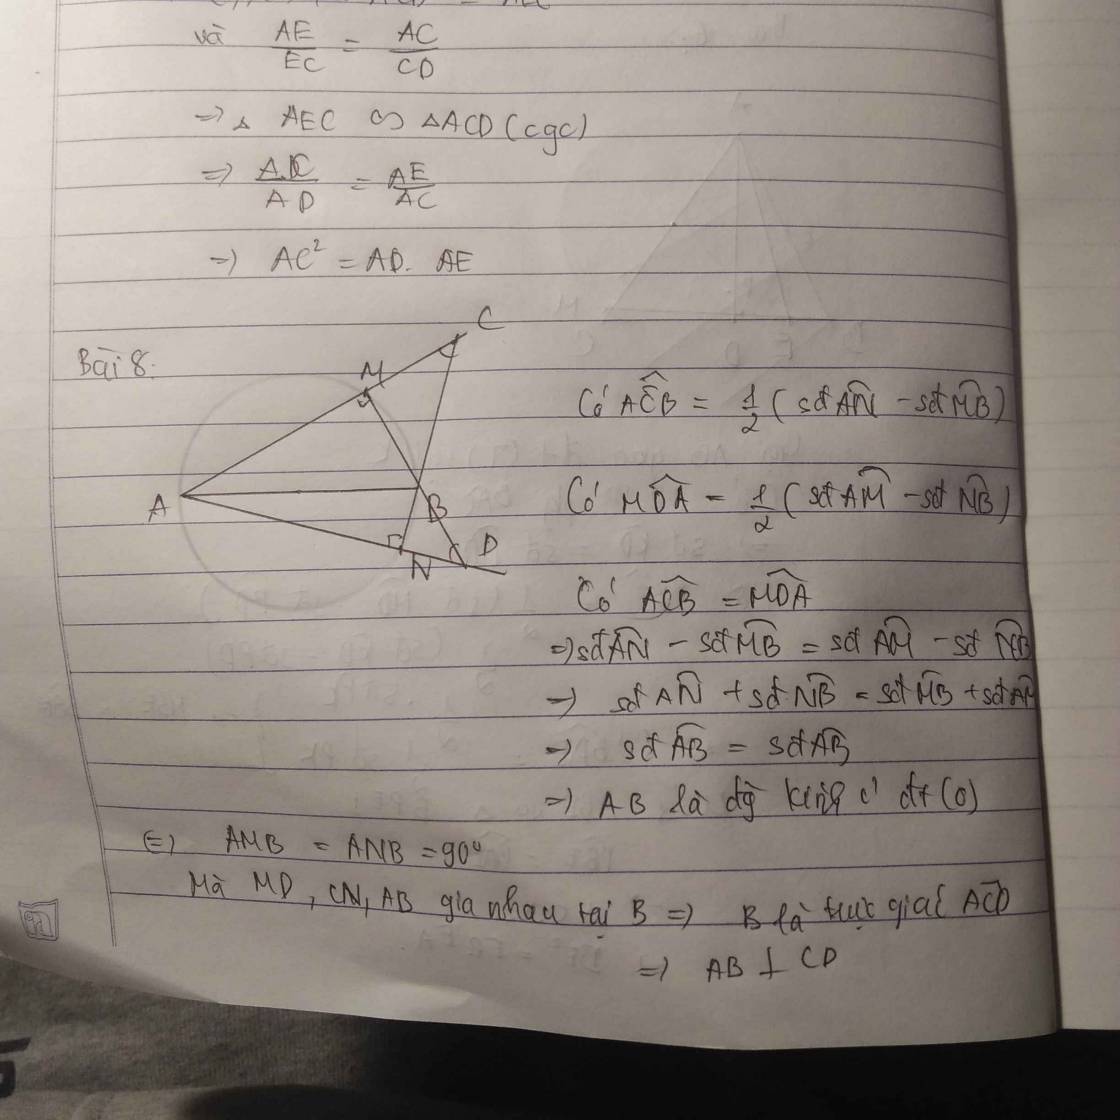 và AE/EC = AC/CD
=> △ AEC ∽ △ACD (cgc)
=> AC/AD = AE/AC
=> AC² = AD. AE
Bài 8:
C
M
A
B
D
N
Có ACB = 1/2 (sđ AN - sđ MB)
Có MDA = 1/2 (sđ AM - sđ NB)
Có ACB = MDA
=> sđ AN - sđ MB = sđ AM - sđ NB
=> sđ AN + sđ NB = sđ MB + sđ AM
=> sđ AB = sđ AB
=> AB là đg kính c' đt (O)
=> AMB = ANB = 90°
Mà MD, CN, AB gia nhau tại B => B là trực ACD
=> AB ⊥ CD